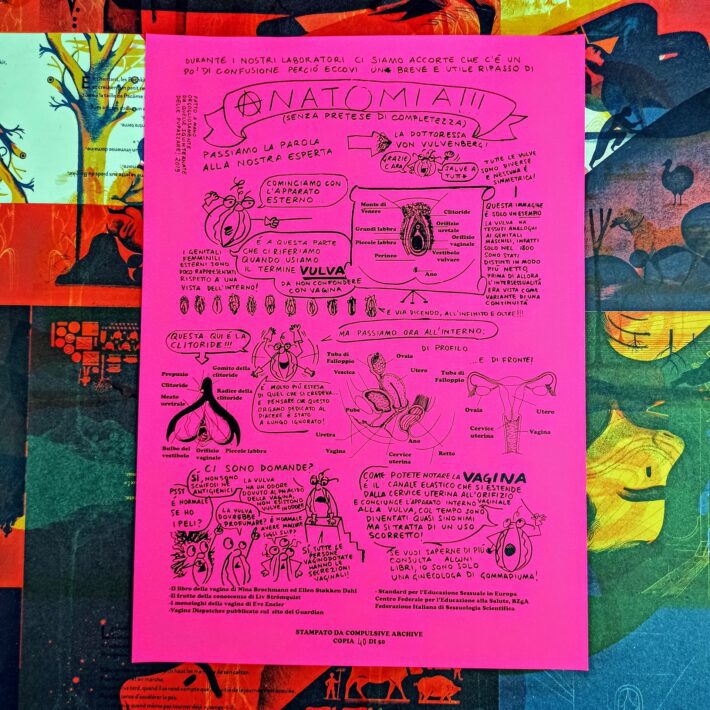 DURANTE I NOSTRI LABORATORI CI SIAMO ACCORTE CHE C'È UN
PO' DI CONFUSIONE PERCIÒ ECCOVI UN BREVE E UTILE RIPASSO DI
ANATOMIA!!!
(SENZA PRETESE DI COMPLETEZZA)
PASSIAMO LA PAROLA
ALLA NOSTRA ESPERTA
LA DOTTORESSA
VON VULVENBERG!
GRAZIE
CARA!
SALVE A
TUTT*
TUTTE LE VULVE
SONO DIVERSE
E NESSUNA È
SIMMETRICA!
COMINCIAMO CON
L'APPARATO
ESTERNO
Monte di
Venere
Grandi labbra
Piccole labbra
Perineo
Clitoride
Orifizio
uretrale
Orifizio
vaginale
Vestibolo
vulvare
Ano
QUESTA IMMAGINE
È SOLO UN ESEMPIO
LA VULVA HA
TESSUTI ANALOGHI
AI GENITALI
MASCHILI, INFATTI
SOLO NEL 1800
SONO STATI
DISTINTI IN MODO
PIÙ NETTO,
PRIMA DI ALLORA,
L'INTERSESSUALITÀ
ERA VISTA COME
VARIANTE DI UNA
CONTINUITÀ
È A QUESTA PARTE
CHE CI RIFERIAMO
QUANDO USIAMO
IL TERMINE VULVA
DA NON CONFONDERE
CON VAGINA
I GENITALI
FEMMINILI
ESTERNI SONO
POCO RAPPRESENTATI
RISPETTO A UNA
VISTA DELL'INTERNO!
E VIA DICENDO, ALL'INFINITO E OLTRE!!!
QUESTA QUI È LA
CLITORIDE!!!
MA PASSIAMO ORA ALL'INTERNO:
DI PROFILO
...E DI FRONTE!
Prepuzio
Clitoride
Meato
uretrale
Gomito della
clitoride
Radice della
clitoride
Bulbo del
vestibolo
Orifizio
vaginale
Piccole labbra
È MOLTO PIÙ ESTESA
DI QUEL CHE SI CREDEVA...
E PENSARE CHE QUESTO
ORGANO DEDICATO AL
PIACERE È STATO
A LUNGO IGNORATO!
Tuba di
Falloppio
Vescica
Pube
Uretra
Vagina
Ovaia
Utero
Ano
Cervice
uterina
Retto
Tuba di
Falloppio
Ovaia
Cervice
uterina
Utero
Vagina
CI SONO DOMANDE?
PSST
È NORMALE
SE HO
I PELI?
SÌ, NON SONO
SCHIFOSI NÉ
ANTIGIENICI
LA VULVA
DOVREBBE
PROFUMARE?
LA VULVA
HA UN ODORE
DOVUTO AL PH ACIDO
DELLA VAGINA,
NON ESISTONO
VULVE INODORE
È NORMALE
AVERE MACCHIE
SUGLI SLIP?
SÌ, TUTTE LE
PERSONE
VAGINODOTATE
HANNO LE
SECREZIONI
VAGINALI!
COME POTETE NOTARE LA VAGINA
È IL CANALE ELASTICO CHE SI ESTENDE
DALLA CERVICE UTERINA ALL'ORIFIZIO
E CONGIUNCE L'APPARATO INTERNO VAGINALE
ALLA VULVA, COL TEMPO SONO
DIVENTATI QUASI SINONIMI
MA SI TRATTA DI UN USO
SCORRETTO!
SE VUOI SAPERNE DI PIÙ
CONSULTA ALCUNI
LIBRI, IO SONO SOLO
UNA GINECOLOGA DI GOMMAPIUMA!
-Il libro della vagina di Nina Brochmann ed Ellen Støkken Dahl
-Il frutto della conoscenza di Liv Strömquist
-I monologhi della vagina di Eve Ensler
-Vagina Dispatches pubblicato sul sito del Guardian
- Standard per l'Educazione Sessuale in Europa
Centro Federale per l'Educazione alla Salute, BZgA
Federazione Italiana di Sessuologia Scientifica
STAMPATO DA COMPULSIVE ARCHIVE
COPIA 40 DI 50